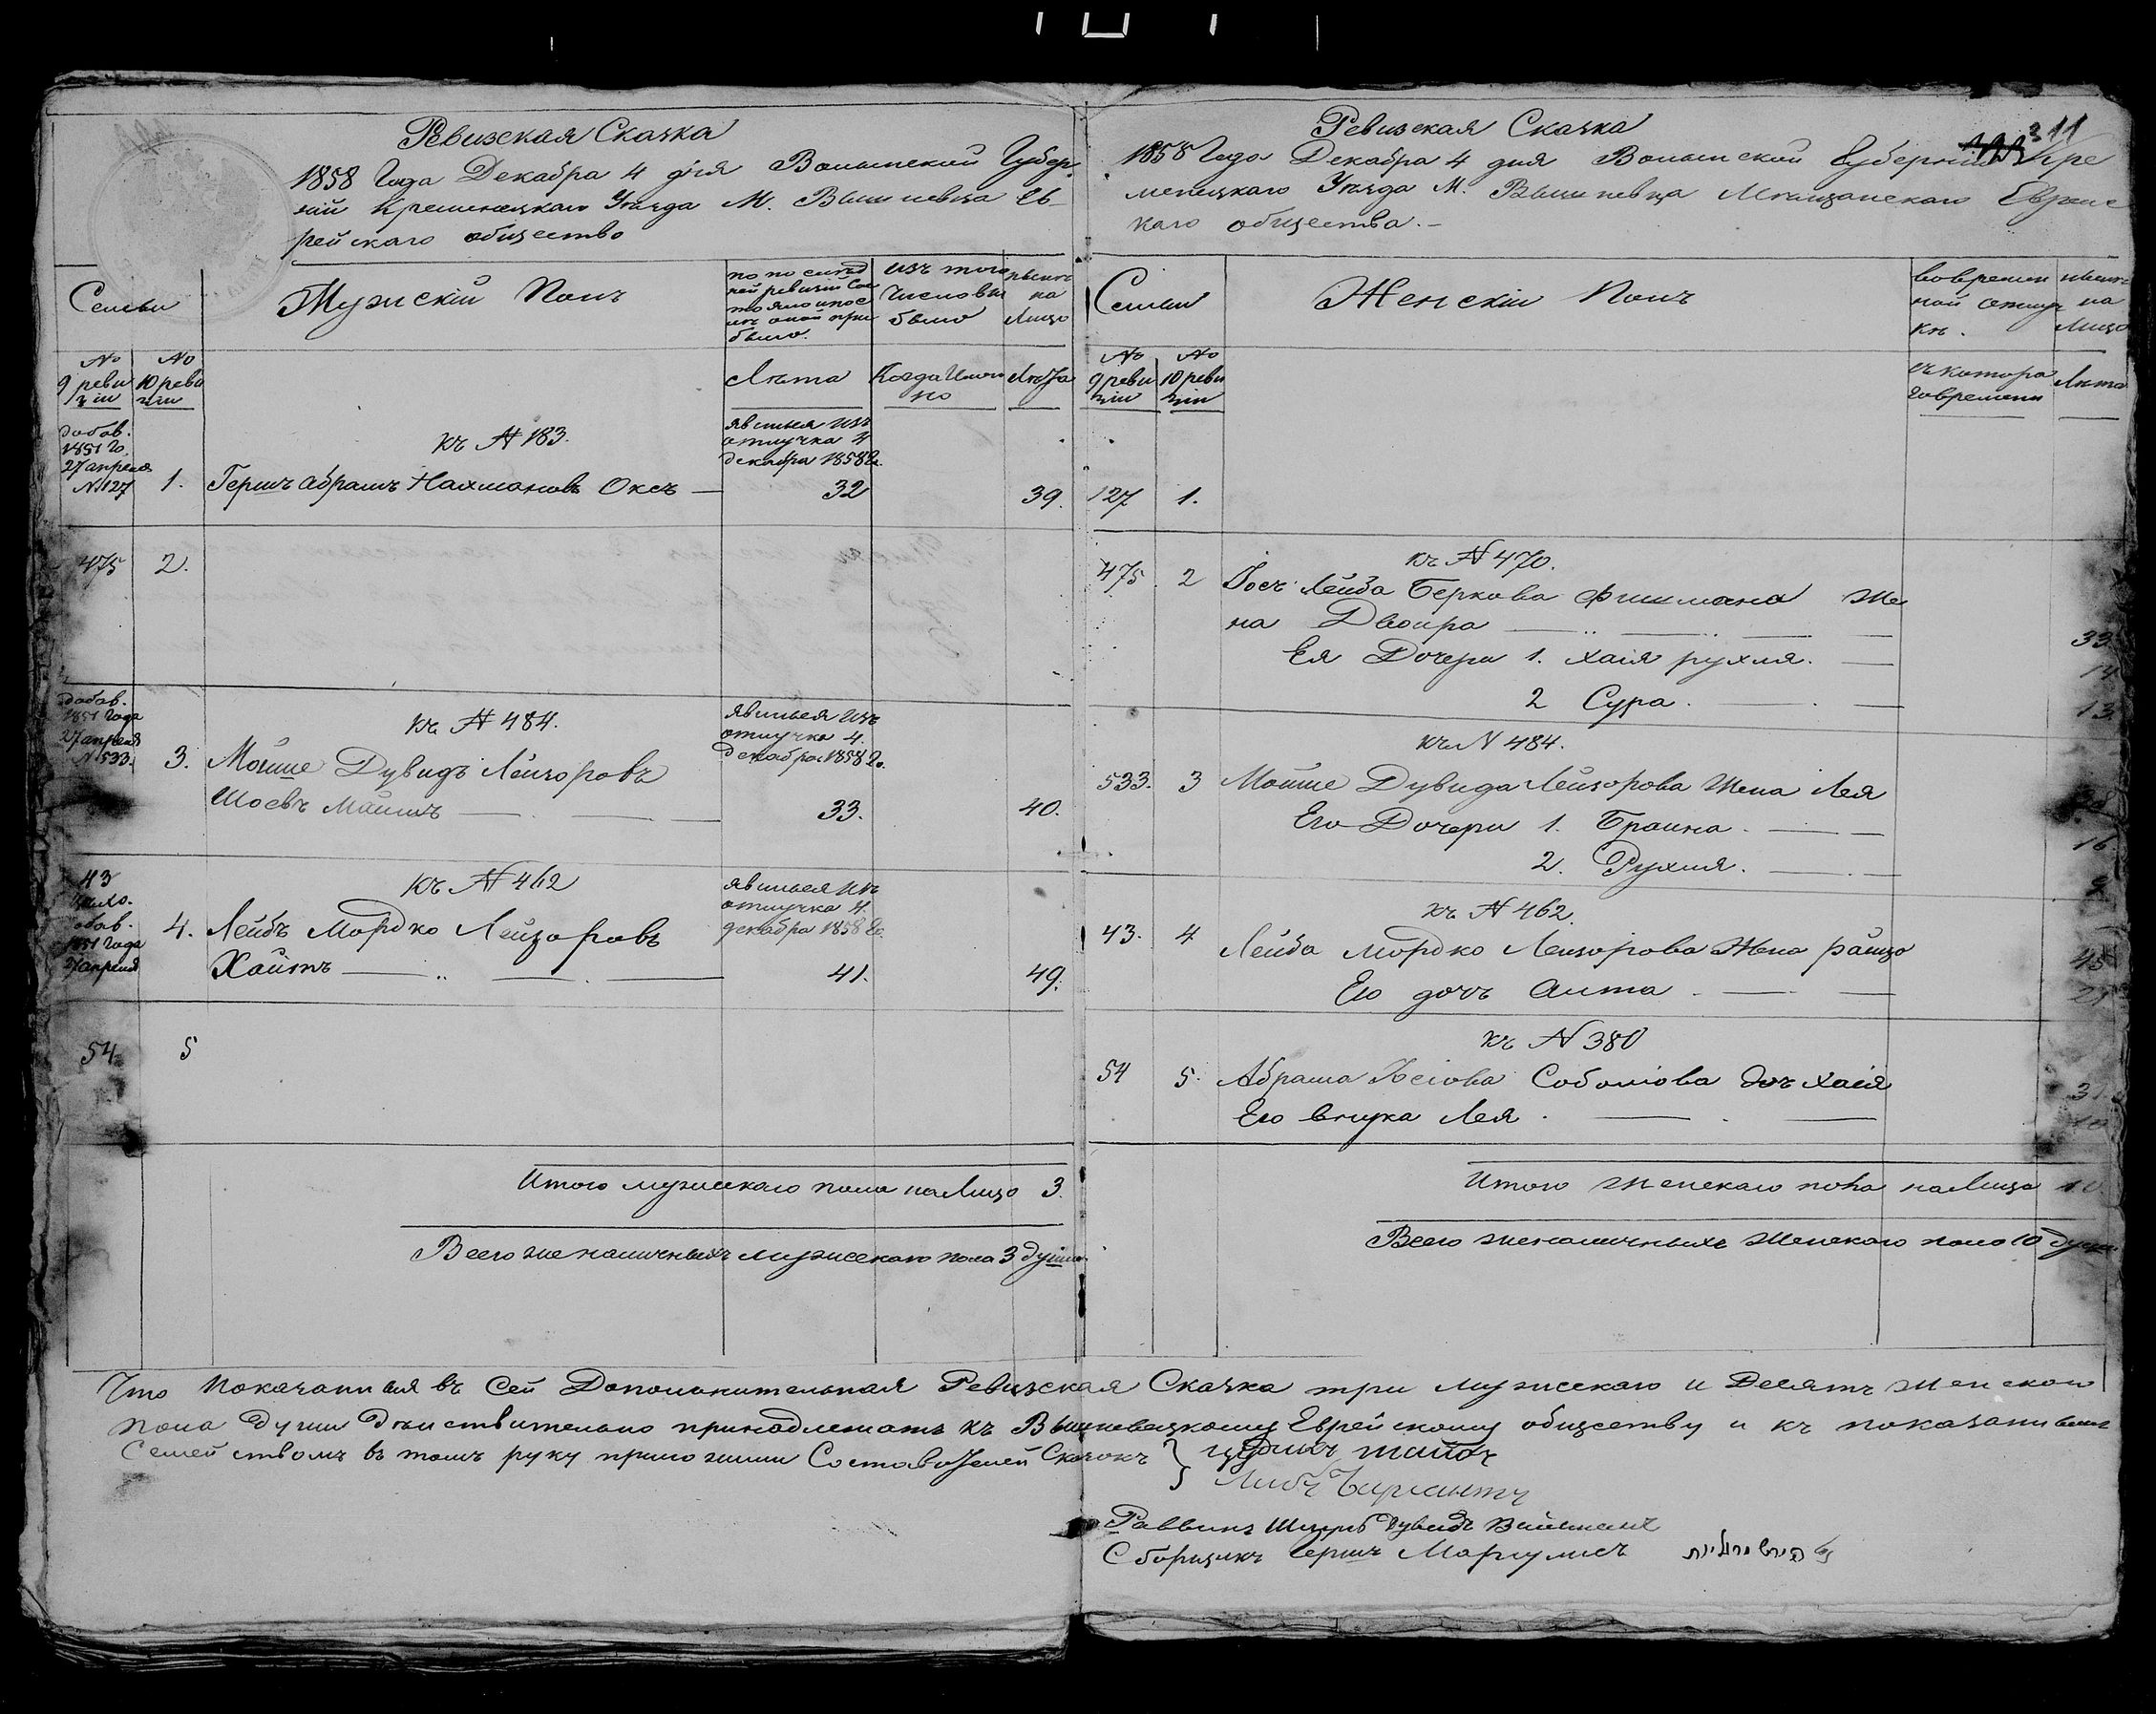 311
Ревизская Сказка
1858 Года Декабря 4 дня Волынской Губер-
ніи Кременецкаго Уѣзда М. Вишневца Ев-
рейскаго общество
Семьи
Мужскій Полъ
по по слѣд
ней ревизіи Сос
тояло и посл
ѣ оной при
было.
изъ того
числа вы
было
нынѣ
на
Лицо
№
9 реви
зіи
№
10 реви
зіи
Лѣта
Когда Имен
но
Лѣта
добав.
1851 Го.
27 апреля
№ 127
1.
къ № 183.
Гершъ Абрамъ Нахмановъ Оксъ
явился изъ
отлучка 4
декабря 1858 Го.
32
39.
475
2.
добав.
1851 Года
27 апреля
№ 533.
3.
къ № 484.
Мойше Дувидъ Лейзоровъ
явился изъ
отлучка 4.
декабря 1858 Го.
33.
40.
43
добав.
1851 Года
27 апреля
4.
къ № 462
Лейбъ Мордко Лейзоровъ
Хайтъ
явился изъ
отлучка 4.
декабря 1858 Го.
41.
49.
54
5
Итого мужескаго пола на Лицо 3.
Всего же наличныхъ мужескаго пола 3 души
Ревизская Сказка
1858 Года Декабря 4 дня Волынской Губерніи Кре
менецкаго Уѣзда М. Вишневца Мѣщанскаго Евреис
каго общества.
Семьи
Женскій Полъ
во времен
ной отлуч
кѣ.
нынѣ
на
Лицо
№
9 реви
зіи
№
10 реви
зіи
съ котора
го времени
Лѣта
127
1.
475.
2
къ № 470.
Іосъ Лейба Беркова Фишмана Же
на Двоира 33
Ея Дочери 1. Хаія рухля. 14
2 Сура. 13
533.
3
къ № 484.
Мойше Дувида Лейзорова Жена Лея
Его Дочери 1. Браина. 16
2. Рухля.
43.
4
къ № 462.
Лейба Мордко Лейзорова Жена райзо 45
Его дочъ Аита 21
54
5.
къ № 380
Абрама Іосіова Соболіова дочъ Хаія 31.
Его внука Лея. 10
Итого женскаго пола на Лицо 10.
Всего же наличныхъ Женскаго пола 10 души
Что показанныя въ Сей Дополнительная Ревизская Сказка три мужескаго и Десять женского
пола души Дѣйствительно принадлежатъ къ Вишневецкому Еврейскому обществу и къ показаннымъ
Семействомъ въ томъ руку приложили Составителей Сказокъ }
Раввинъ Дувидъ
Сборщикъ Гершъ Маргулисъ